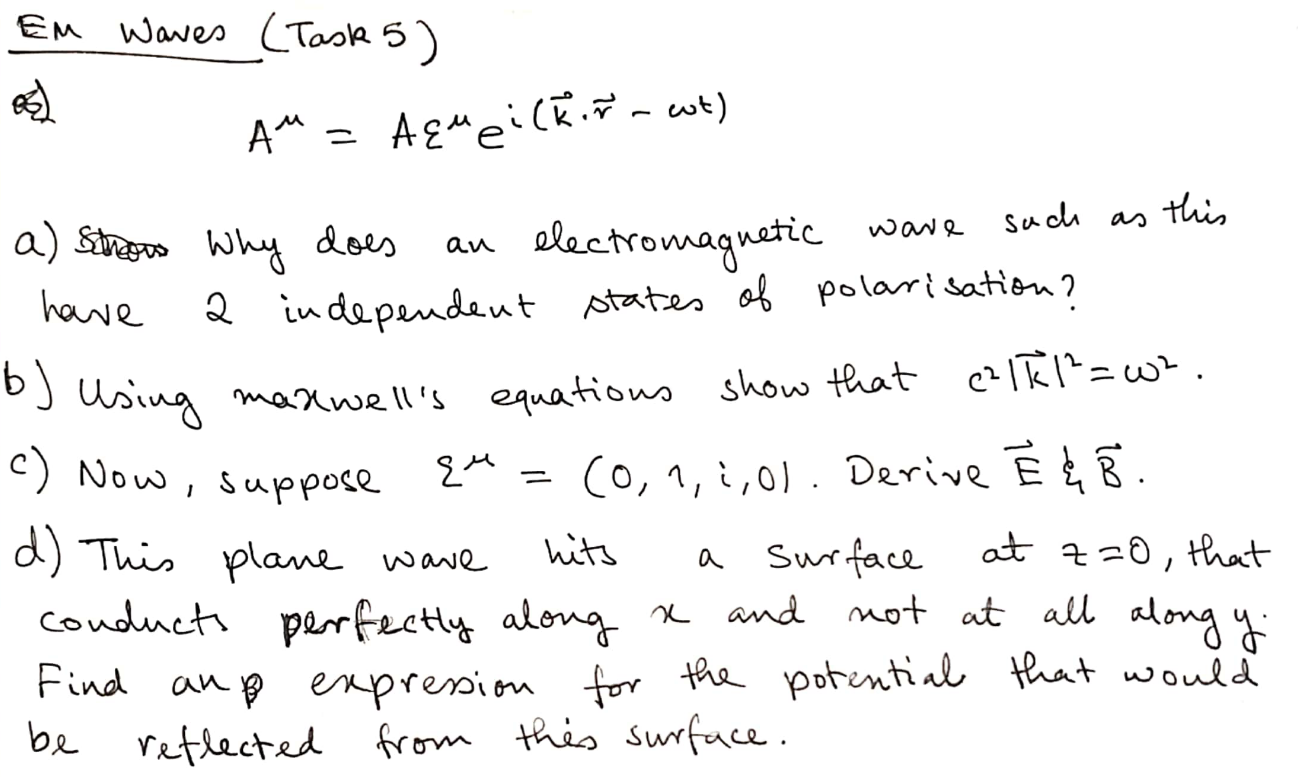 EM Waves (Task 5)
A^μ = Aε^μ e^{i(k⃗·r⃗ - ωt)}
a) Why does an electromagnetic wave such as this
have 2 independent states of polarisation?
b) Using maxwell's equations show that c²|k⃗|² = ω².
c) Now, suppose ε^μ = (0, 1, i, 0). Derive E⃗ & B⃗.
d) This plane wave hits a surface at z=0, that
conducts perfectly along x and not at all along y.
Find an expression for the potential that would
be reflected from this surface.